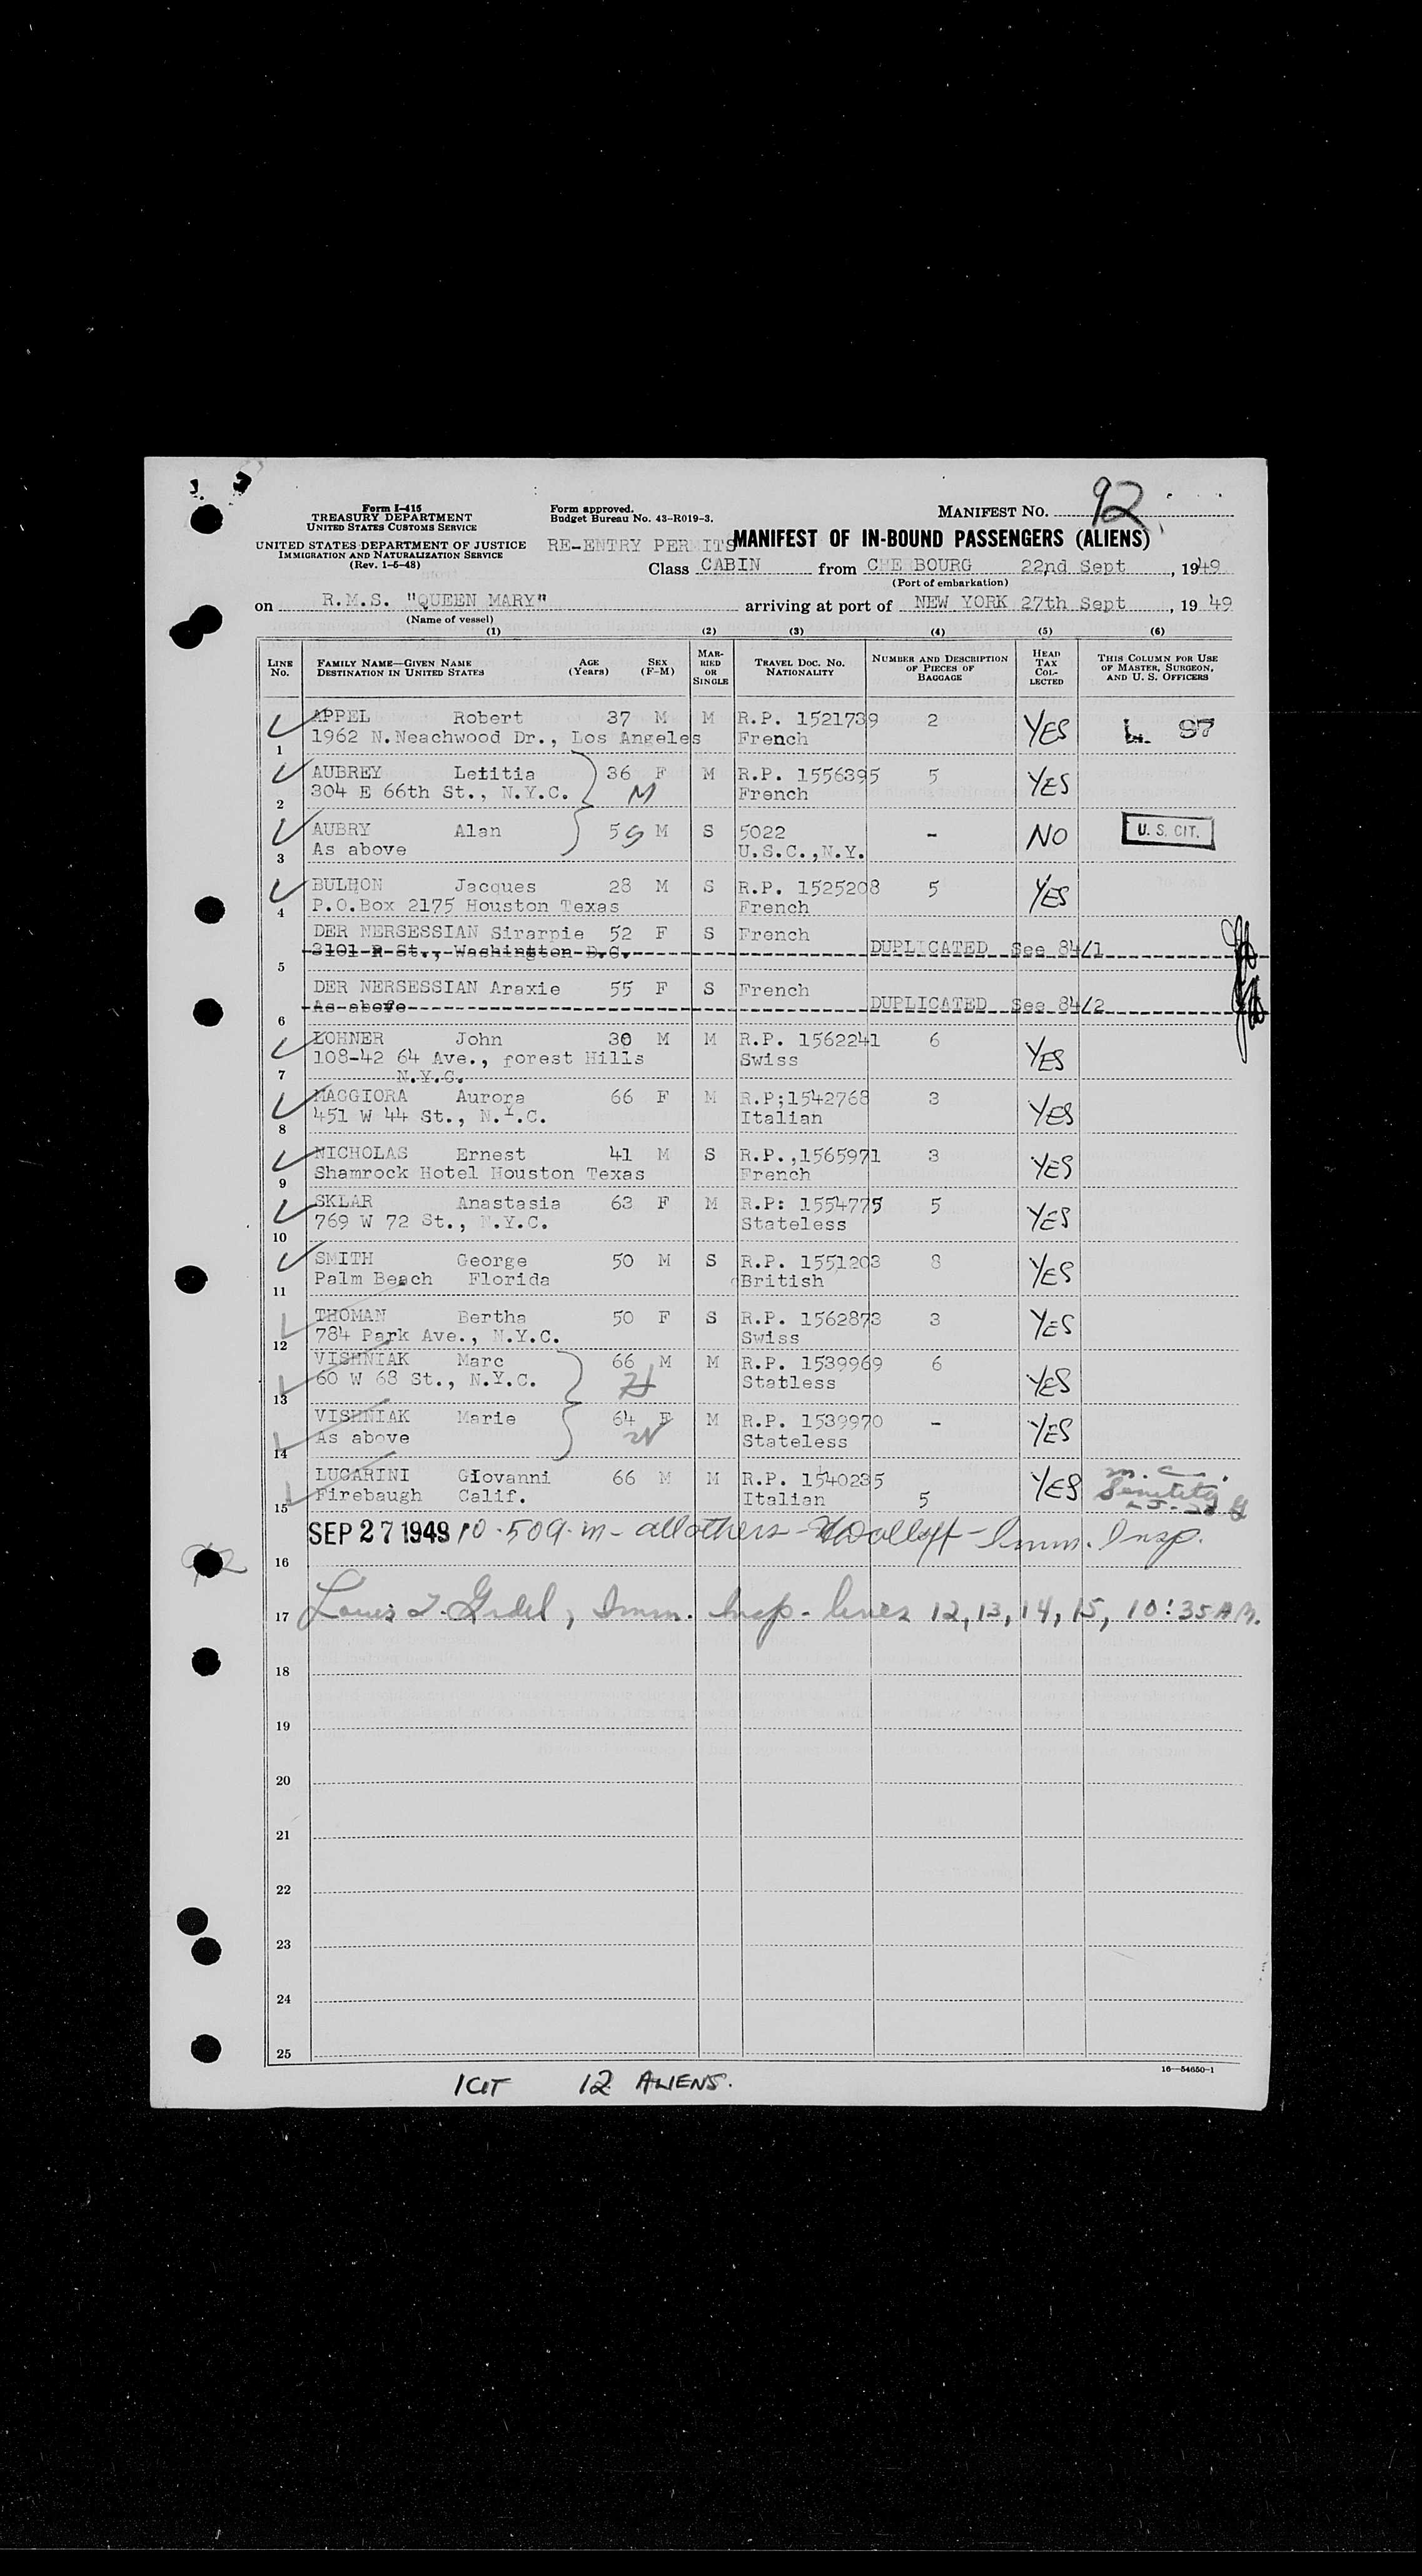 Form I-415
TREASURY DEPARTMENT
UNITED STATES CUSTOMS SERVICE
UNITED STATES DEPARTMENT OF JUSTICE
IMMIGRATION AND NATURALIZATION SERVICE
(Rev. 1-5-48)
Form approved.
Budget Bureau No. 43-R019-3.
MANIFEST NO. 92
RE-ENTRY PERMITS MANIFEST OF IN-BOUND PASSENGERS (ALIENS)
Class CABIN from CHERBOURG 22nd Sept, 1949
(Port of embarkation)
on R.M.S. "QUEEN MARY" arriving at port of NEW YORK 27th Sept, 1949
(Name of vessel)
(1) (2) (3) (4) (5) (6)
LINE NO. FAMILY NAME—GIVEN NAME DESTINATION IN UNITED STATES AGE (Years) SEX (F-M) MARRIED OR SINGLE TRAVEL DOC. NO. NATIONALITY NUMBER AND DESCRIPTION OF PIECES OF BAGGAGE HEAD TAX COLLECTED THIS COLUMN FOR USE OF MASTER, SURGEON, AND U. S. OFFICERS
APPEL Robert 37 M M R.P. 1521739 2 YES L 97
1 1962 N.Neachwood Dr., Los Angeles French
AUBREY Letitia 36 F M R.P. 1556395 5 YES
2 304 E 66th St., N.Y.C. M French
AUBRY Alan 5 M S 5022 - NO U. S. CIT.
3 As above U.S.C.,N.Y.
BULHON Jacques 28 M S R.P. 1525208 5 YES
4 P.O.Box 2175 Houston Texas French
DER NERSESSIAN Sirarpie 52 F S French
5 3101 R St., Washington D.C. DUPLICATED See 84/1
DER NERSESSIAN Araxie 55 F S French
6 As above DUPLICATED See 84/2
LOHNER John 30 M M R.P. 1562241 6 YES
108-42 64 Ave., forest Hills Swiss
7 N.Y.C.
MAGGIORA Aurora 66 F M R.P;1542768 3 YES
8 451 W 44 St., N.Y.C. Italian
NICHOLAS Ernest 41 M S R.P.,1565971 3 YES
9 Shamrock Hotel Houston Texas French
SKLAR Anastasia 63 F M R.P: 1554775 5 YES
10 769 W 72 St., N.Y.C. Stateless
SMITH George 50 M S R.P. 1551203 8 YES
11 Palm Beach Florida British
THOMAN Bertha 50 F S R.P. 1562873 3 YES
12 784 Park Ave., N.Y.C. Swiss
VISHNIAK Marc 66 M M R.P. 1539969 6 YES
13 60 W 68 St., N.Y.C. Statless
VISHNIAK Marie 64 F M R.P. 1539970 - YES
14 As above Stateless
LUCARINI GIovanni 66 M M R.P. 1540235 5 YES m.c.
15 Firebaugh Calif. Italian
SEP 27 1949 10.50 a.m - all others - Imm. Insp.
16
17 Louis Imm. Insp. lines 12, 13, 14, 15, 10:35 AM.
18
19
20
21
22
23
24
25
16—54650-1
1 CIT 12 ALIENS.